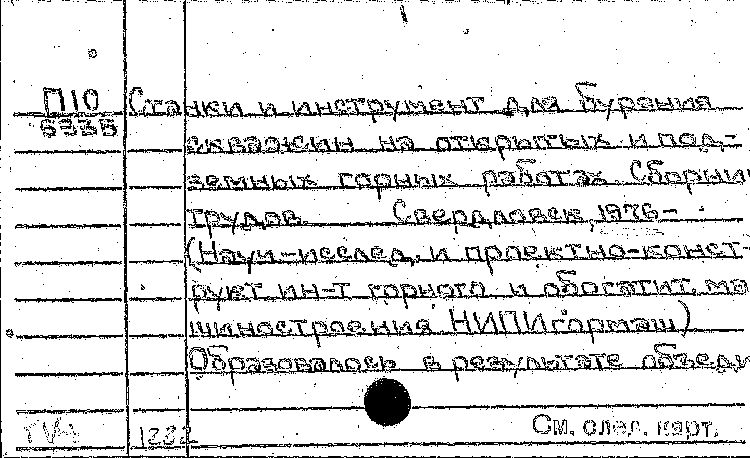 П10 Станки и инструмент для бурения
6335 скважин на открытых и под-
земных горных работах. Сборник
трудов. Свердловск, 1976-
(Науч.-исслед. и проектно-конст-
рукт. ин-т горного и обогатит. ма
шиностроения НИПИгормаш)
Образовалось в результате объеди
1232 См. след. карт.